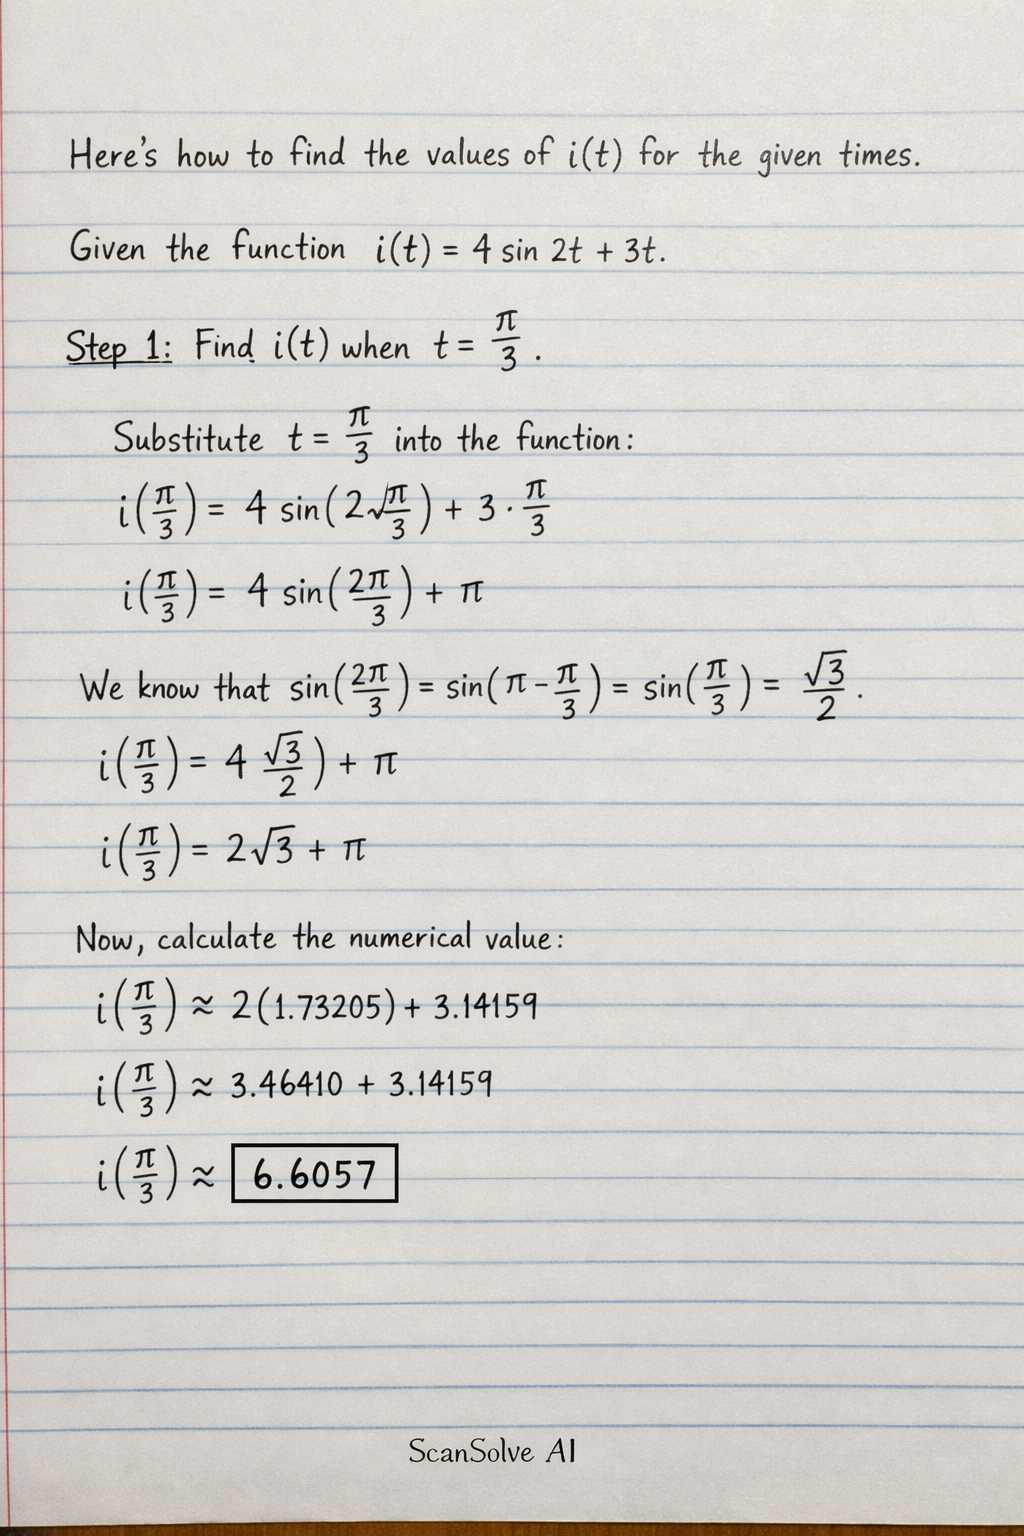 Here's how to find the values of i(t) for the given times.
Given the function i(t) = 4 sin 2t + 3t.
Step 1: Find i(t) when t = π/3.
Substitute t = π/3 into the function:
i(π/3) = 4 sin(2√π/3) + 3·π/3
i(π/3) = 4 sin(2π/3) + π
We know that sin(2π/3) = sin(π-π/3) = sin(π/3) = √3/2.
i(π/3) = 4 √3/2) + π
i(π/3) = 2√3 + π
Now, calculate the numerical value:
i(π/3) ≈ 2(1.73205) + 3.14159
i(π/3) ≈ 3.46410 + 3.14159
i(π/3) ≈ 6.6057
ScanSolve AI